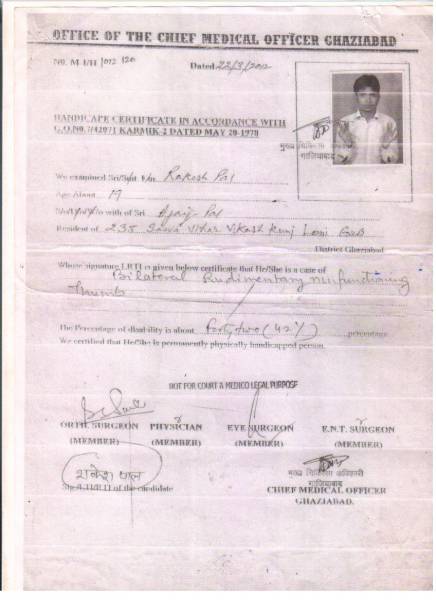 OFFICE OF THE CHIEF MEDICAL OFFICER GHAZIABAD
Dated 22/3/2012
HANDICAPE CERTIFICATE IN ACCORDANCE WITH
G.O.NO.7/4207/1 KARMIK-2 DATED MAY 20-1978
मुख्य चिकित्सा
गाजियाबाद
We examined Sri/Smt Rakesh Pal
Age About 19
with of Sri Ajay Pal
Resident of 235 Vihar Vikash Kunj Loni GZB
District Ghaziabad
Whose signature LRTI is given below certificate that He/She is a case of
Bilateral Rudimentary nonfunctioning
Thumb
The Percentage of disability is about Forty two (42%) percentage
We certified that He/She is permanently physically handicapped person.
NOT FOR COURT A MEDICO LEGAL PURPOSE
ORTH. SURGEON PHYSICIAN EYE SURGEON E.N.T. SURGEON
(MEMBER) (MEMBER) (MEMBER) (MEMBER)
राकेश पाल
of the candidate
मुख्य चिकित्सा अधिकारी
गाजियाबाद
CHIEF MEDICAL OFFICER
GHAZIABAD.